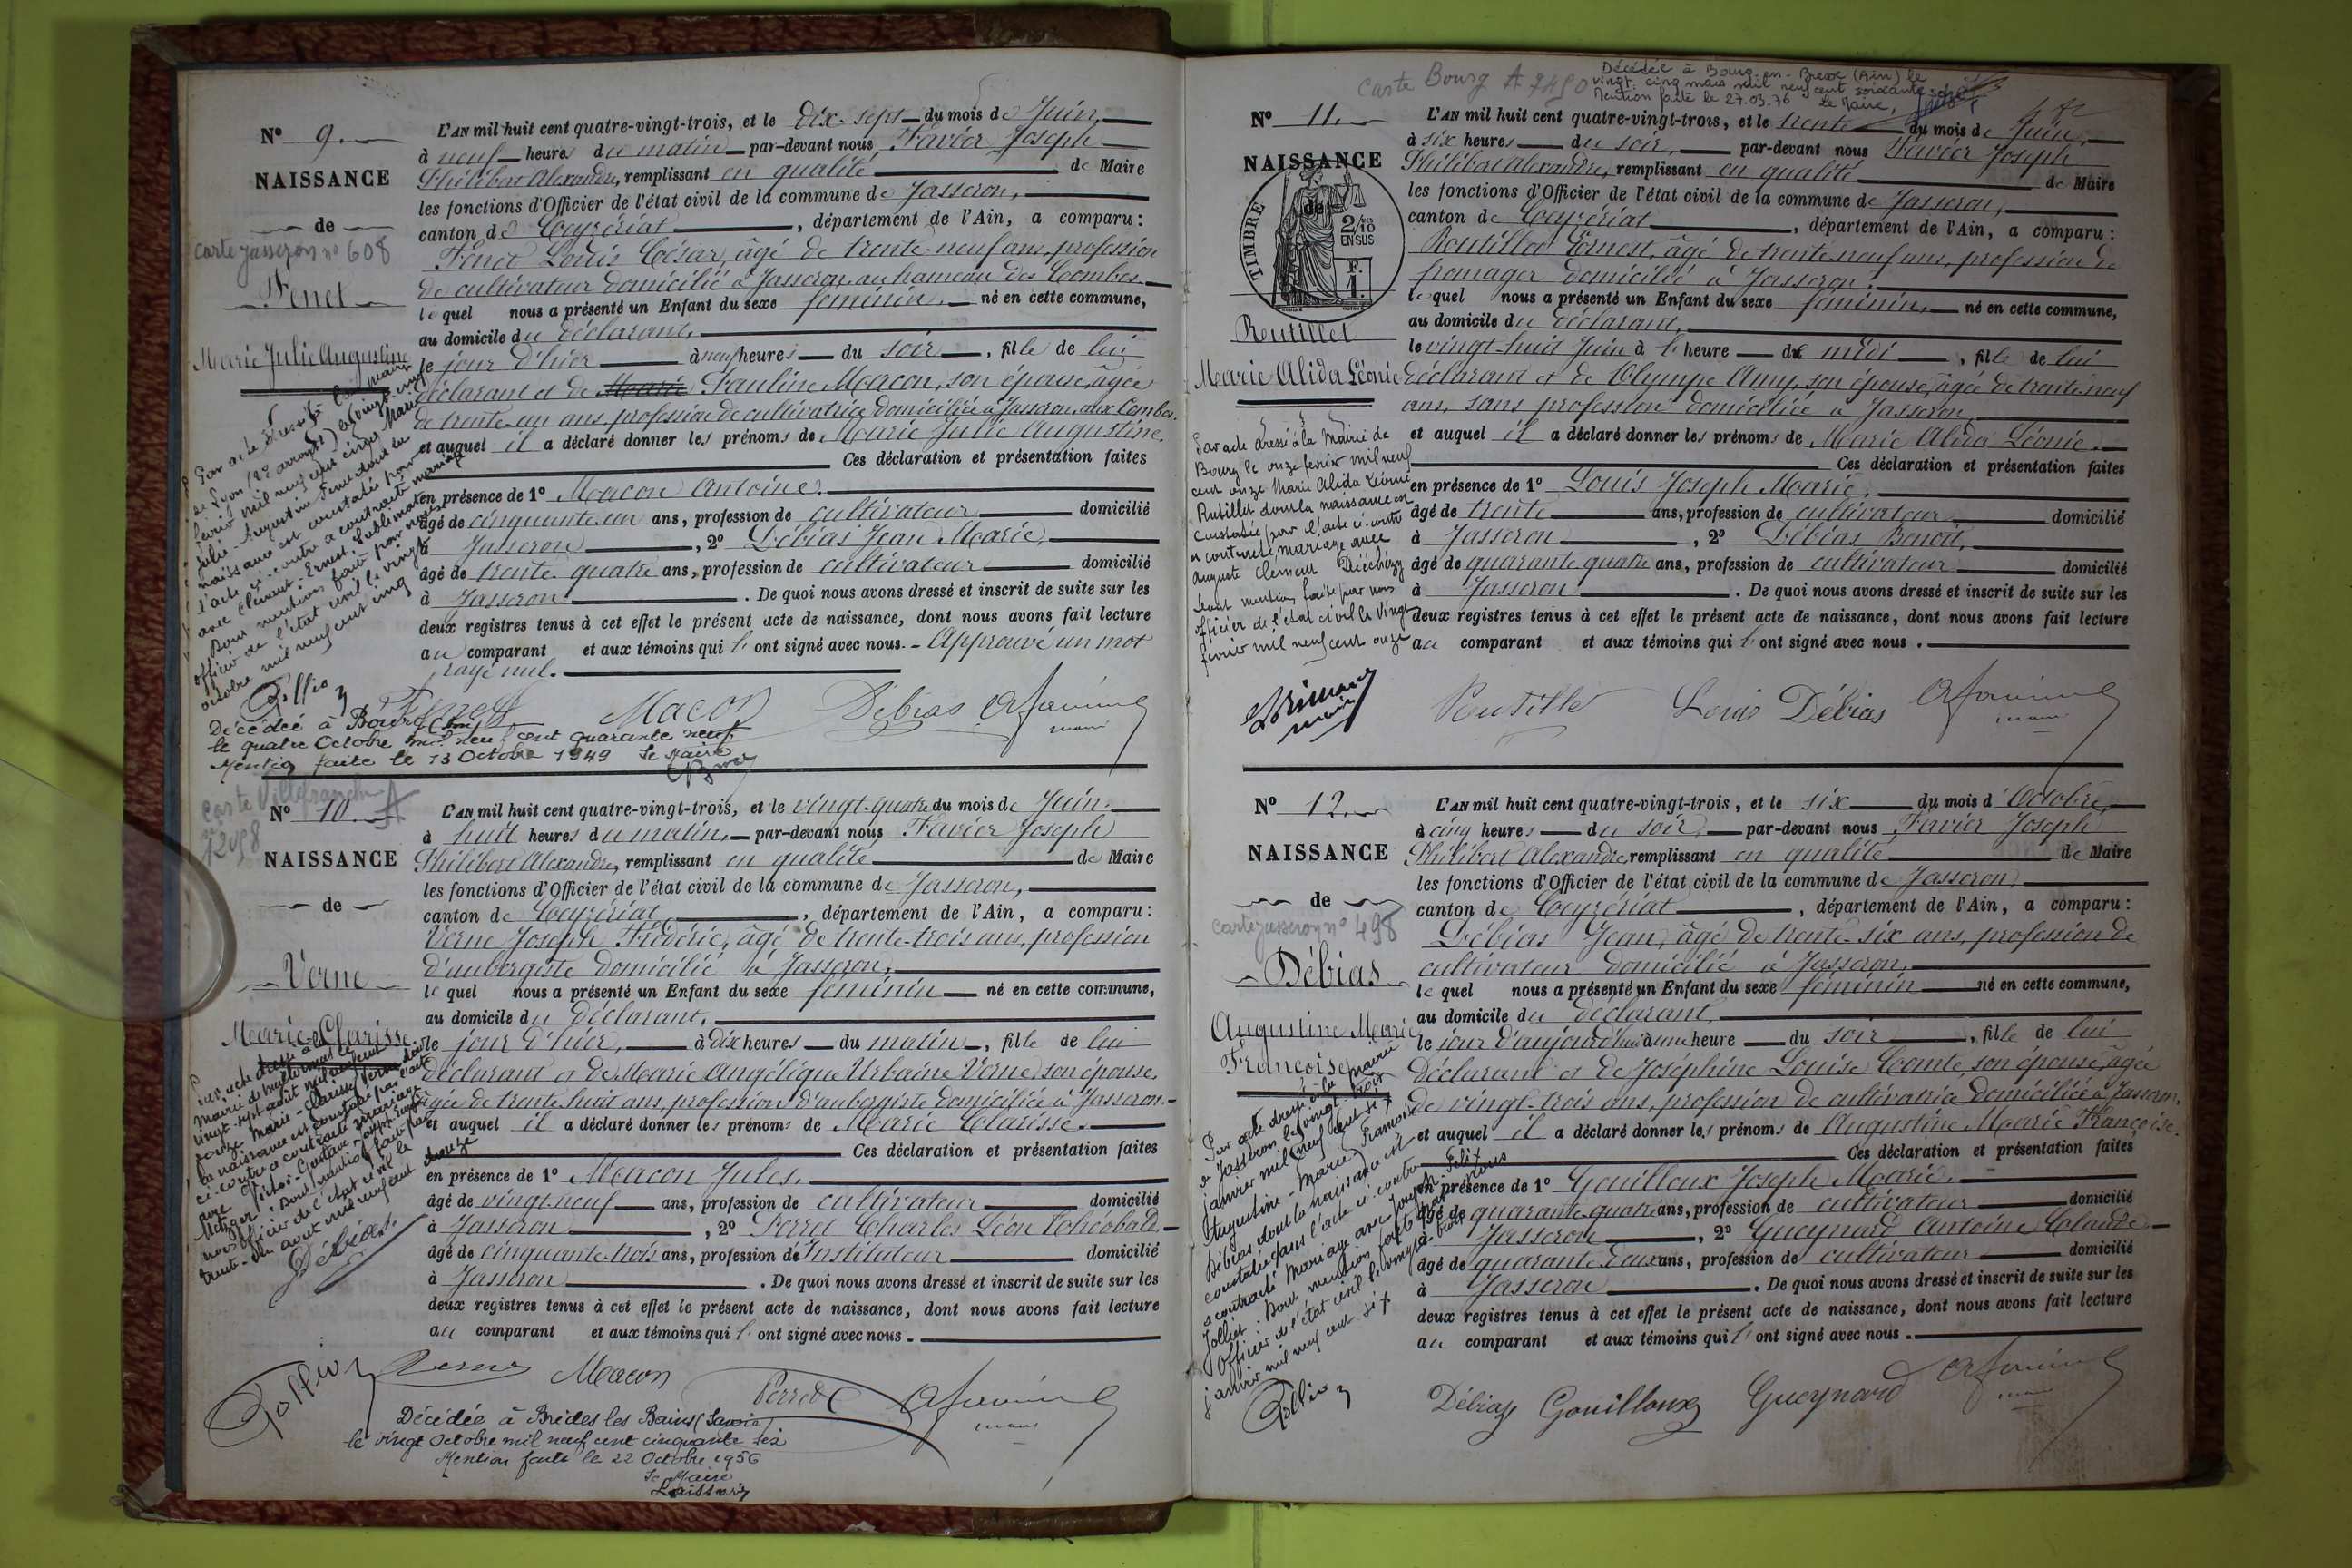 N° 9.
NAISSANCE
de
carte Jasseron n° 608
Fenet
Marie Julie Augustine
L'AN mil huit cent quatre-vingt-trois, et le dix-sept du mois de Juin,
à neuf heures du matin par-devant nous Favier Joseph
Philibert Alexandre, remplissant en qualité de Maire
les fonctions d'Officier de l'état civil de la commune de Jasseron,
canton de Ceyzériat, département de l'Ain, a comparu:
Fenet Louis César, âgé de trente-neuf ans, profession
de cultivateur domicilié à Jasseron au hameau des Combes
lequel nous a présenté un Enfant du sexe féminin, né en cette commune,
au domicile du déclarant,
le jour d'hier à neuf heures du soir, fille de lui
déclarant et de Marie Pauline Macon, son épouse, âgée
de trente-un ans, profession de cultivatrice domiciliée à Jasseron, aux Combes.
et auquel il a déclaré donner les prénoms de Marie Julie Augustine.
Ces déclaration et présentation faites
en présence de 1° Macon Antoine,
âgé de cinquante-un ans, profession de cultivateur domicilié
à Jasseron, 2° Débias Jean Marie,
âgé de trente-quatre ans, profession de cultivateur domicilié
à Jasseron. De quoi nous avons dressé et inscrit de suite sur les
deux registres tenus à cet effet le présent acte de naissance, dont nous avons fait lecture
au comparant et aux témoins qui l'ont signé avec nous. - Approuvé un mot
rayé nul.
Par acte dressé à la mairie
de Lyon (2e arrondt) le vingt-cinq
mil neuf cent cinq, Marie
Julie-Augustine Fenet dont la
naissance est constatée par
l'acte ci-contre a contracté mariage
avec Clément-Ernest
Dont mention faite par nous
officier de l'état civil le vingt
octobre mil neuf cent cinq
Fenet Macon Débias
maire
Décédée à
le quatre Octobre mil neuf cent quarante neuf
Mention faite le 13 Octobre 1949 Le Maire
carte Villefranche A
N° 10.
12098
NAISSANCE
de
Verne
Marie-Clarisse
L'AN mil huit cent quatre-vingt-trois, et le vingt-quatre du mois de Juin.
à huit heures du matin, par-devant nous Favier Joseph
Philibert Alexandre, remplissant en qualité de Maire
les fonctions d'Officier de l'état civil de la commune de Jasseron,
canton de Ceyzériat, département de l'Ain, a comparu:
Verne Joseph Frédéric, âgé de trente-trois ans, profession
d'aubergiste domicilié à Jasseron,
lequel nous a présenté un Enfant du sexe féminin né en cette commune,
au domicile du déclarant,
le jour d'hier, à dix heures du matin, fille de lui
déclarant et de Marie Angélique Urbaine Verne, son épouse,
âgée de trente-huit ans, profession d'aubergiste domiciliée à Jasseron.
et auquel il a déclaré donner les prénoms de Marie Clarisse.
Ces déclaration et présentation faites
en présence de 1° Macon Jules,
âgé de vingt-neuf ans, profession de cultivateur domicilié
à Jasseron, 2° Perret Charles Léon Théobald
âgé de cinquante-trois ans, profession d'Instituteur domicilié
à Jasseron. De quoi nous avons dressé et inscrit de suite sur les
deux registres tenus à cet effet le présent acte de naissance, dont nous avons fait lecture
au comparant et aux témoins qui l'ont signé avec nous.
Par acte dressé à la
mairie de
vingt-sept août mil neuf cent
Marie-Clarisse Verne dont
la naissance est constatée par l'acte
ci-contre a contracté mariage
avec Victor-Gustave-Joseph
Metzger. Dont mention faite par
nous officier de l'état civil le
trente-un août mil neuf cent douze
Débias
Verne Macon Perret
maire
Décédée à Brides les Bains (Savoie)
le vingt Octobre mil neuf cent cinquante six
Mention faite le 22 Octobre 1956
Le Maire
carte Bourg A 7450
Décédée à Bourg-en-Bresse (Ain) le
vingt cinq mars mil neuf cent soixante seize
Mention faite le 27.03.76 Le Maire,
N° 11.
NAISSANCE
de
TIMBRE
2/10
EN SUS
F.
1.
Routillet
Marie Alida Léonie
L'AN mil huit cent quatre-vingt-trois, et le trente du mois de Juin,
à six heures du soir, par-devant nous Favier Joseph
Philibert Alexandre, remplissant en qualité de Maire
les fonctions d'Officier de l'état civil de la commune de Jasseron,
canton de Ceyzériat, département de l'Ain, a comparu:
Routillet Ernest, âgé de trente-neuf ans, profession de
fromager domicilié à Jasseron.
lequel nous a présenté un Enfant du sexe féminin, né en cette commune,
au domicile du déclarant,
le vingt-huit Juin à 1 heure de midi, fille de lui
déclarant et de Olympe Amy, son épouse, âgée de trente-neuf
ans, sans profession domiciliée à Jasseron,
et auquel il a déclaré donner les prénoms de Marie Alida Léonie.
Ces déclaration et présentation faites
en présence de 1° Louis Joseph Marie,
âgé de trente ans, profession de cultivateur domicilié
à Jasseron, 2° Débias Benoit,
âgé de quarante-quatre ans, profession de cultivateur domicilié
à Jasseron. De quoi nous avons dressé et inscrit de suite sur les
deux registres tenus à cet effet le présent acte de naissance, dont nous avons fait lecture
au comparant et aux témoins qui l'ont signé avec nous.
Par acte dressé à la Mairie de
Bourg le onze février mil neuf
cent onze Marie Alida Léonie
Rutillet dont la naissance est
constatée par l'acte ci-contre
a contracté mariage avec
Auguste Clément
Dont mention faite par nous
officier de l'état civil le vingt
février mil neuf cent onze
maire
Routillet Louis Débias
maire
N° 12.
NAISSANCE
de
carte Jasseron n° 498
Débias
Augustine Marie
Françoise
L'AN mil huit cent quatre-vingt-trois, et le six du mois d'Octobre,
à cinq heures du soir, par-devant nous Favier Joseph
Philibert Alexandre, remplissant en qualité de Maire
les fonctions d'Officier de l'état civil de la commune de Jasseron,
canton de Ceyzériat, département de l'Ain, a comparu:
Débias Jean, âgé de trente-six ans, profession de
cultivateur domicilié à Jasseron,
lequel nous a présenté un Enfant du sexe féminin né en cette commune,
au domicile du déclarant,
le jour d'aujourd'hui à une heure du soir, fille de lui
déclarant et de Joséphine Louise Comte, son épouse, âgée
de vingt-trois ans, profession de cultivatrice domiciliée à Jasseron,
et auquel il a déclaré donner les prénoms de Augustine Marie Françoise.
Ces déclaration et présentation faites
en présence de 1° Gouilloux Joseph Marie,
âgé de quarante-quatre ans, profession de cultivateur domicilié
à Jasseron, 2° Gueynard Antoine Claude
âgé de quarante-deux ans, profession de cultivateur domicilié
à Jasseron. De quoi nous avons dressé et inscrit de suite sur les
deux registres tenus à cet effet le présent acte de naissance, dont nous avons fait lecture
au comparant et aux témoins qui l'ont signé avec nous.
Par acte dressé à la mairie
de Jasseron le vingt-trois
janvier mil neuf cent six
Augustine-Marie Françoise
Débias dont la naissance est
constatée dans l'acte ci-contre
a contracté mariage avec Joseph Félix
Jolliet. Dont mention faite par nous
officier de l'état civil le vingt-trois
janvier mil neuf cent six
Débias Gouilloux Gueynard
maire